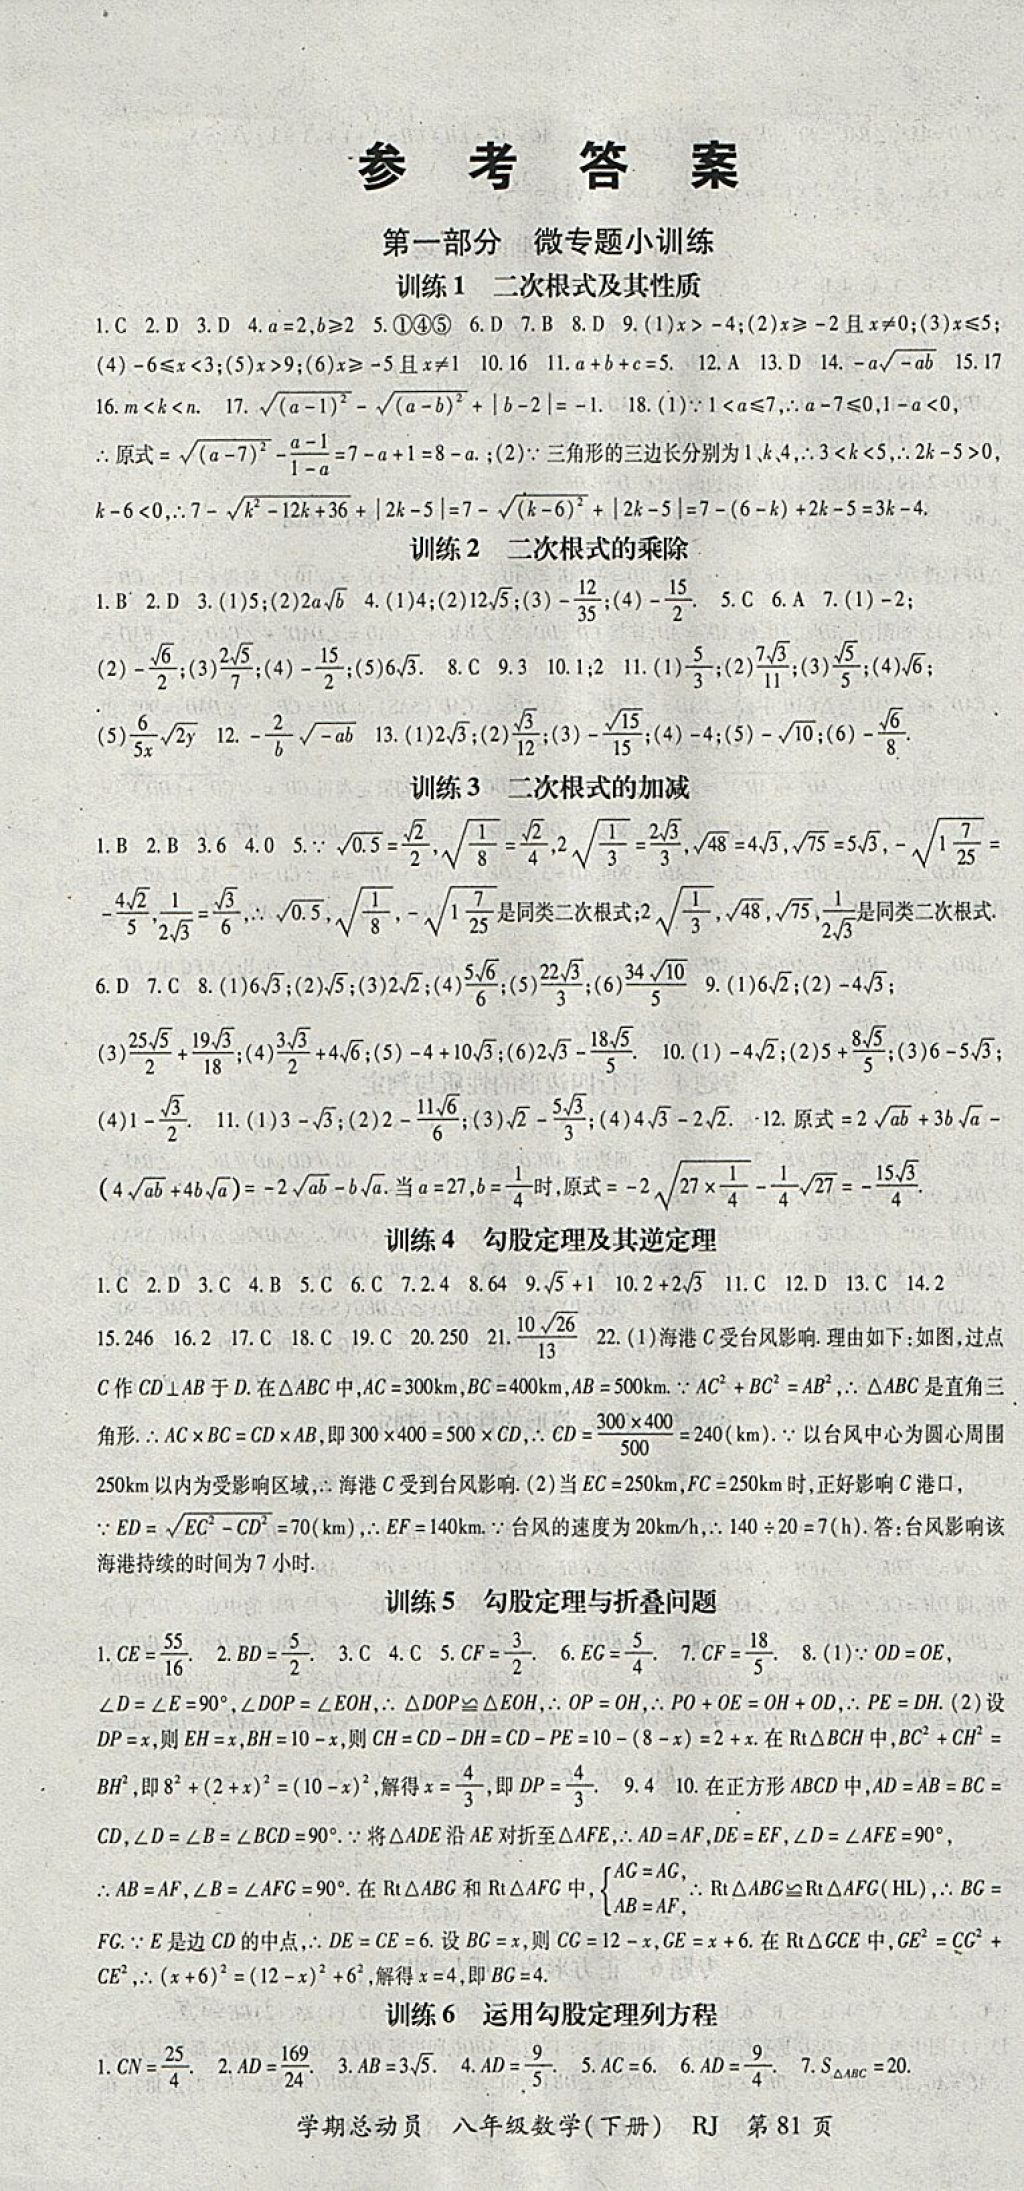 参 考 答 案
第一部分 微专题小训练
训练1 二次根式及其性质
1. C 2. D 3. D 4. a=2,b≥2 5. ①④⑤ 6. D 7. B 8. D 9. (1)x>-4;(2)x≥-2且x≠0;(3)x≤5;
(4)-6≤x<3;(5)x>9;(6)x≥-5且x≠1 10. 16 11. a+b+c=5. 12. A 13. D 14. -a√(-ab) 15. 17
16. m<k<n. 17. √((a-1)²)-√((a-b)²)+|b-2|=-1. 18. (1)∵1<a≤7,∴a-7≤0,1-a<0,
∴原式=√((a-7)²)-(a-1)/(1-a)=7-a+1=8-a.;(2)∵三角形的三边长分别为1、k、4,∴3<k<5,∴2k-5>0,
k-6<0,∴7-√(k²-12k+36)+|2k-5|=7-√((k-6)²)+|2k-5|=7-(6-k)+2k-5=3k-4.
训练2 二次根式的乘除
1. B 2. D 3. (1)5;(2)2a√b 4. (1)4;(2)12√5;(3)-12/35;(4)-15/2. 5. C 6. A 7. (1)-2;
(2)-√6/2;(3)2√5/7;(4)-15/2;(5)6√3. 8. C 9. 3 10. 1;2 11. (1)5/3;(2)7√3/11;(3)√5/5;(4)√6;
(5)6/5x√2y 12. -2/b√(-ab) 13. (1)2√3;(2)√3/12;(3)-√15/15;(4)-4;(5)-√10;(6)-√6/8.
训练3 二次根式的加减
1. B 2. B 3. 6 4. 0 5. ∵√0.5=√2/2,√(1/8)=√2/4,2√(1/3)=2√3/3,√48=4√3,√75=5√3,-√(1 7/25)=
-4√2/5,1/(2√3)=√3/6,∴√0.5,√(1/8),-√(1 7/25)是同类二次根式;2√(1/3),√48,√75,1/(2√3)是同类二次根式.
6. D 7. C 8. (1)6√3;(2)√5;(3)2√2;(4)5√6/6;(5)22√3/3;(6)34√10/5 9. (1)6√2;(2)-4√3;
(3)25√5/2+19√3/18;(4)3√3/2+4√6;(5)-4+10√3;(6)2√3-18√5/5. 10. (1)-4√2;(2)5+8√5/5;(3)6-5√3;
(4)1-√3/2. 11. (1)3-√3;(2)2-11√6/6;(3)√2-5√3/3;(4)4√3-2√2. 12. 原式=2√ab+3b√a-
(4√ab+4b√a)=-2√ab-b√a.当a=27,b=1/4时,原式=-2√(27×1/4)-1/4√27=-15√3/4.
训练4 勾股定理及其逆定理
1. C 2. D 3. C 4. B 5. C 6. C 7. 2.4 8. 64 9. √5+1 10. 2+2√3 11. C 12. D 13. C 14. 2
15. 246 16. 2 17. C 18. C 19. C 20. 250 21. 10√26/13 22. (1)海港C受台风影响.理由如下:如图,过点
C作CD⊥AB于D.在△ABC中,AC=300km,BC=400km,AB=500km.∵AC²+BC²=AB²,∴△ABC是直角三
角形.∴AC×BC=CD×AB,即300×400=500×CD,∴CD=300×400/500=240(km).∵以台风中心为圆心周围
250km以内为受影响区域,∴海港C受到台风影响.(2)当EC=250km,FC=250km时,正好影响C港口,
∵ED=√(EC²-CD²)=70(km),∴EF=140km.∵台风的速度为20km/h,∴140÷20=7(h).答:台风影响该
海港持续的时间为7小时.
训练5 勾股定理与折叠问题
1. CE=55/16. 2. BD=5/2. 3. C 4. C 5. CF=3/2. 6. EG=5/4. 7. CF=18/5. 8. (1)∵OD=OE,
∠D=∠E=90°,∠DOP=∠EOH,∴△DOP≌△EOH,∴OP=OH,∴PO+OE=OH+OD,∴PE=DH.(2)设
DP=x,则EH=x,BH=10-x,则CH=CD-DH=CD-PE=10-(8-x)=2+x.在Rt△BCH中,BC²+CH²=
BH²,即8²+(2+x)²=(10-x)²,解得x=4/3,即DP=4/3. 9. 4 10. 在正方形ABCD中,AD=AB=BC=
CD,∠D=∠B=∠BCD=90°.∵将△ADE沿AE对折至△AFE,∴AD=AF,DE=EF,∠D=∠AFE=90°,
∴AB=AF,∠B=∠AFG=90°.在Rt△ABG和Rt△AFG中,{AG=AG, AB=AF,∴Rt△ABG≌Rt△AFG(HL),∴BG=
FG.∵E是边CD的中点,∴DE=CE=6.设BG=x,则CG=12-x,GE=x+6.在Rt△GCE中,GE²=CG²+
CE²,∴(x+6)²=(12-x)²+6²,解得x=4,即BG=4.
训练6 运用勾股定理列方程
1. CN=25/4. 2. AD=169/24. 3. AB=3√5. 4. AD=9/5. 5. AC=6. 6. AD=9/4. 7. S△ABC=20.
学期总动员 八年级数学(下册) RJ 第81页